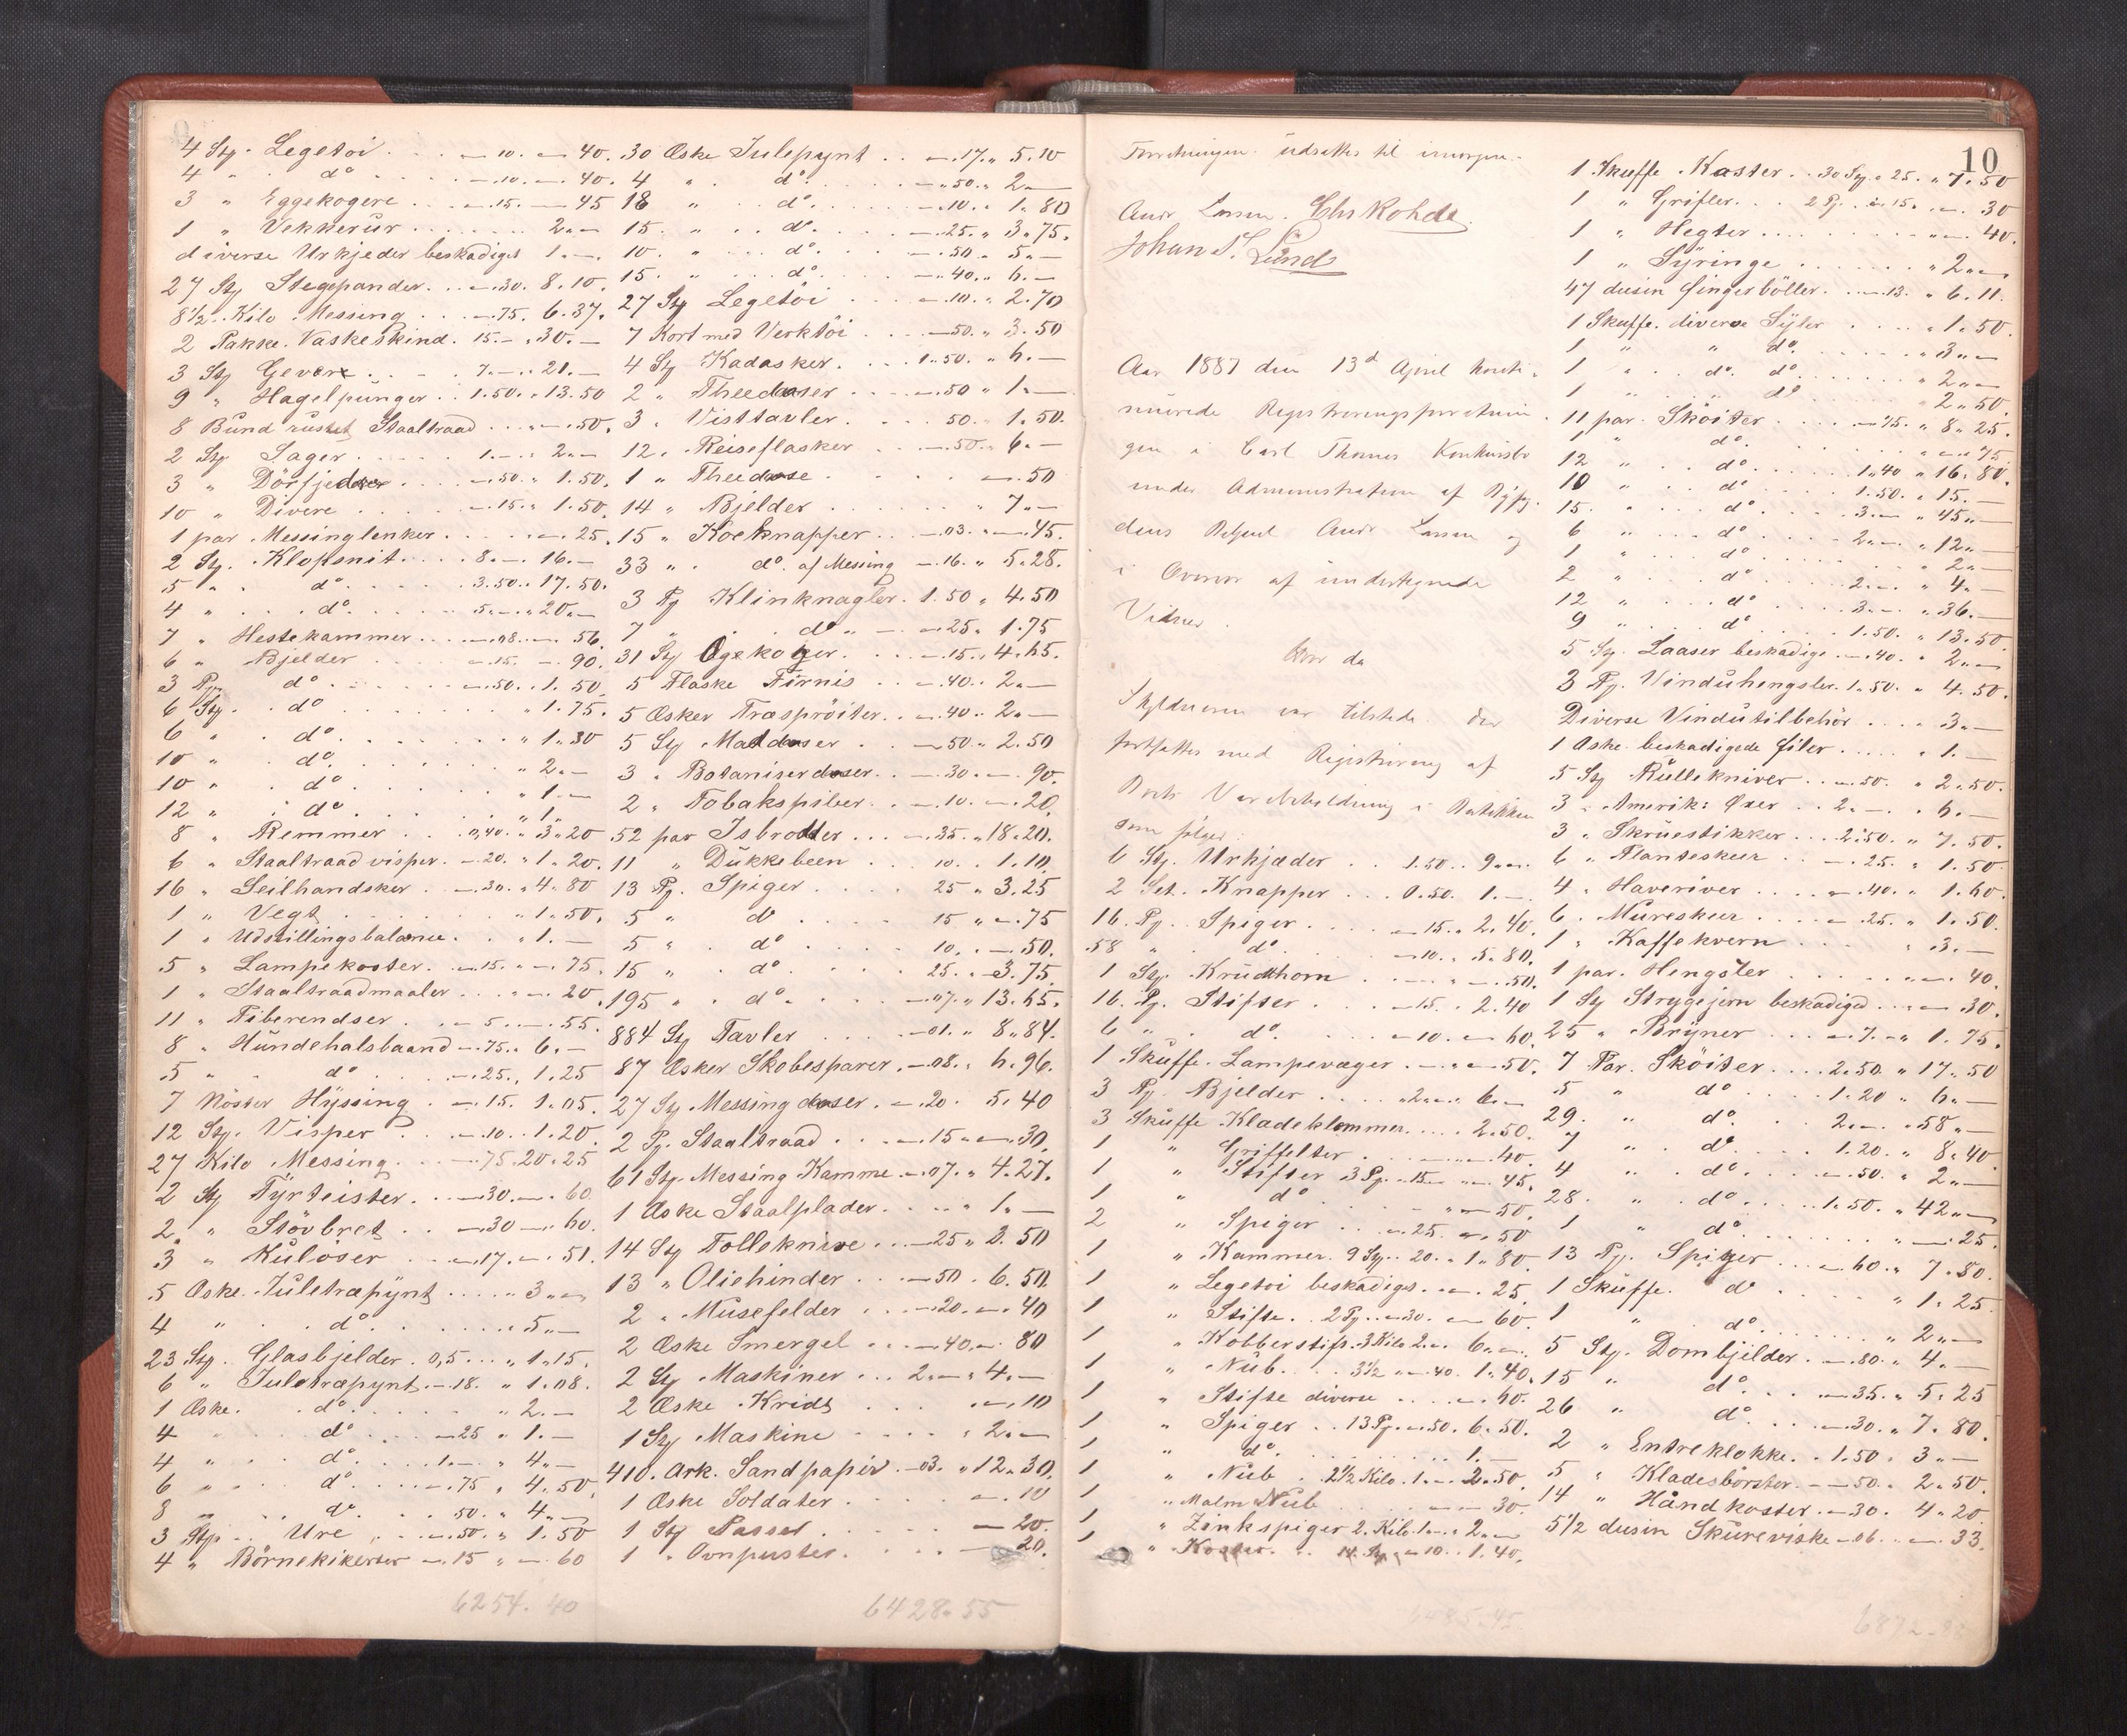 4 Stg. Legetöi . . . — 10. — 40.
4 " d° . . . . — 10. — 40.
3 " Eggekogere . . — 15. — 45
1 " Vekkerur . . . . 2 " —
diverse Urkjeder beskadiget 1. —
27 Stg Stegepander . . — 30. 8.10.
8 1/2 Kilo Messing . . — 75. 6.37.
2 Pakke Vaskeskind. 15. — " 30. —
3 Stg Gevær . . 7. — " 21. —
9 " Hagelpunger . . 1.50. " 13.50
8 Bund rustet Staaltraad . . . — 50.
2 Stg Sager . . . 1. — " 2 " —
3 " Dörfjedrer . . — 50. " 1.50.
10 " Divere . . . — 15. " 1.50.
1 par Messinglenker . . . . — 25.
2 Stg. Klopsnit . . . 8. — 16. —
5 " d° . . . . 3.50. " 17.50.
4 " d° . . . . 5. — " 20. —
7 " Hestekammer . . — 08. — 56.
6 " Bjelder . . . — 15. — 90.
3 Pg. d° . . . . — 50. " 1.50.
6 Stg. d° . . . . . . " 1.75.
6 " d° . . . . . . " 1.30
10 " d° . . . . . . " 2. —
10 " d° . . . . . . " 1. —
12 " d° . . . . . . " 1. —
8 " Remmer . . . 0,40. " 3.20
6 " Staaltraad visper. — 20. " 1.20.
16 " Seilhandsker . . — 30. " 4.80
1 " Vegt . . . . . " 1.50.
1 " Udstillingsbalance . . " 1. —
5 " Lampekoster . — 15. " — 75.
1 " Staaltraadmaaler . . . " — 20.
11 " Piberendser . . — 5. — " 55.
8 " Hundehalsbaand — 75. " 6. —
5 " d° . . . . — 25. " 1.25
7 Nöster Hyssing . — 15. 1.05.
12 Stg. Visper . . — 10. " 1.20.
27 Kilo Messing . . — 75. 20.25
2 Stg Fyrteister . . — 30. — 60.
2 " Stövbret . . — 30. — 60.
3 " Kuloser . . . — 17. — 51.
5 Æske Juletræpynt . . . " 3 " —
4 " d° . . . . . " 5. —
23 Stg. Glasbjelder . 0,5 . . " 1.15.
6 " Juletræpynt. — 18. " 1.08.
1 Æske. d° . . . . " 2. —
4 " d° . . . — 25 " 1. —
4 " d° . . . 1. — " 4. —
6 " d° . . . — 75 " 4.50.
8 " d° . . . 50. " 4. —
3 Stg. Ure . . . — 50. " 1.50
4 " Börnekikerter — 15 " — 60
6254.40
30 Æske Julepynt . . — 17. " 5.10
4 " d° . . . . — 50. " 2. —
18 " d° . . . . — 10. " 1.80
15 " d° . . . . — 25. " 3.75.
10. " d° . . . . — 50. " 5. —
15. " d° . . . . — 40. " 6. —
27 Stg Legetöi . . . — 10. " 2.70
7 Kort med Verktöi . . — 50. " 3.50
4 Stg Kadasker . . . 1.50. " 6. —
2 " Theedaaser . . . — 50 " 1. —
3 " Visttavler . . . 50. " 1.50.
12 " Reiseflasker . . — 50. " 6. —
1 " Theedaase . . . . — 50
14 " Bjelder . . . . . " 7. —
15 " Kokknapper . . — 03. " — 45.
33 " d°. af Messing — 16. " 5.28.
3 Pg Klinknagler . 1.50 " 4.50
7 " d° " — — 25 " 1.75
31 Stg Ægekoger . . — 15. " 4.65.
5 Flaske Firnis . . — 40. " 2. —
5 Æsker Træspröiter . . — 40. " 2. —
5 Stg Maddaaser . . — 50. " 2.50
3 " Botaniserdaaser . . — 30. " — 90.
2 " Tobakspiber . . — 10. — 20.
52 par Isbrodder . . . — 35. " 18.20.
11 " Dukkebeen . . . 10. " 1.10.
13 Pg. Spiger . . . . 25 " 3.25
5 " d° . . . . 15 " — 75
5 " d° . . . . 10. " — 50.
15 " d° . . . . 25. " 3.75.
195 " d° . . . . — 07. " 13.65.
884 Stg Tavler . . . — 01. " 8.84.
87 Æsker Skobesparer . — 08. " 6.96.
27 Stg Messing daaser . — 20. 5.40
2 Pg. Staaltraad . . . — 15 " — 30.
61 Stg. Messing Kamme . — 07. " 4.27.
1 Æske Staalplader . . . . " 1. —
14 Stg Tolleknive . . . — 25 " 3.50
13 " Oliehinder . . . — 50 . 6.50.
2 " Musefelder . . . — 20. — 40
2 Æske Smergel . . . — 40. — 80
2 Stg Maskiner . . . 2. — " 4. —
2 Æske Kridt . . . . — 10
1 Stg Maskine . . . . " 2. —
410. Ark. Sandpapir . — 03. " 12.30.
1 Æske Soldater . . . . — 10
1 Stg Passer . . . . . — 20.
1 " Ovnpuster . . . . — 20.
6428.55
10
Forretningen udsattes til imorgen.
Andr Larsen. Chs Rohde.
Johan F. Lund
Aar 1887 den 13d April konti-
nuerede Registreringsforretnin-
gen i Carl Thornes Konkursbo
under Administration af Byfog-
dens Betjent Andr Larsen og
i Overvær af undertegnede
Vidner.
Hvor da
Skyldneren var tilstede. Der
fortsattes med Registrering af
Boets Varebeholdning i Butikken
som følger:
6 Stg. Urkjæder . . 1.50. " 9. —
2 Set. Knapper . . 0.50. 1. —
16. Pg. Spiger . . . — 15. " 2.40.
58 " d° . . . . — 10. " 5.80.
1 Stg. Krudthorn . . . " — 50.
16. Pg. Stifter . . . — 15. " 2.40
6 " d° . . . . — 10. — 60.
1 Skuffe. Lampevæger . — " — 50.
3 Pg. Bjelder . . . . 2. — " 6. —
3 Skuffe Klædeklemmer . . . 2.50.
1 " Griffelter . . . . — 40.
1 " Stifter 3 Pg. — 15 — " — 45.
1 " d° . . . . . " — 50.
2 " Spiger . . — 25. — 50
1 " Kammer. 9 Stg. . 20. " 1.80.
1 " Legetöi beskadiget . . — 25.
1 " Stifte . . 2 Pg. — 30. — 60.
1 " Kobberstift. 3 Kilo 2. — 6. —
1 " Nub . . . 3 1/2 " — 40. 1.40.
1 " Stifte diverse . . . — 40.
1 " Spiger . . 13 Pg. — 50. 6.50.
1 " d° . . . . . . 1. —
1 " Nub . 2 1/2 Kilo. 1. — 2.50.
1 " Malm Nub . . . . . — 30.
1 " Zinkspiger 2. Kilo. 1. — " 2. —
1 " Koster . . 14. Stg. — 10. " 1.40.
6485.45
1 Skuffe Kaster . . 30 Stg. " 25. " 7.50
1 " Grifler . . . 2 Pg. . — 15. " — 30
1 " Hegter . . . . . " — 40.
1 " Syringe . . . . . " 2. —
47 dusin Fingerböller . . — 13. " 6.11.
1 Skuffe. diverse Syler . . . " 1.50.
1 " " d° . . . . " 3. —
1 " d°. d° . . . . " 2. —
1 " " d° . . . . " 2.50.
11 par. Sköiter . . . . — 75. " 8.25.
1 " d° . . . . . " — 75.
12 " d° . . . . 1.40 " 16.80.
10 " d° . . . . 1.50. " 15. —
15. " d° . . . . 3. — " 45 " —
6 " d° . . . . 2. — " 12. —
1 " d° . . . . . . 2. —
2 " d° . . . . 2. — " 4. —
12 " d° . . . . 3. — " 36. —
9 " d° . . . . 1.50. " 13.50.
5 Stg. Laaser beskadige . — 40. " 2. —
3 Pg. Vinduhengsler. 1.50. " 4.50.
Diverse Vindutilbehör . . . . 3. —
1 Æske beskadigede Filer . . . . " 1. —
5 Stg Rullekniver . . — 50. " 2.50.
3 " Amerik: Øxer . . 2. — . 6. —
3 " Skruestikker . . . 2.50. " 7.50.
6 " Planteskeer . . — 25. " 1.50.
4 " Haveriver . . . . — 40. " 1.60.
6 " Mureskeer . . . . — 25. " 1.50.
1 " Kaffekvern . . . . " 3. —
1 par. Hengsler . . . . . . — 40.
1 Stg Strygejern beskadiged . . . — 30.
25 " Bryner . . . — 7. — " 1.75.
7 Par. Sköiter . . . . 2.50. " 17.50
5 " d° . . . . 1.20 " 6. —
29. " d° . . . 2. — " 58 " —
7 " d° . . . . 1.20. " 8.40.
4 " d° . . . . — 50. " 2. —
28. " d° . . . . 1.50. " 42 " —
1 " d° . . . . . " — 25.
13 Pg. Spiger . . . — 60. " 7.80.
1 Skuffe. d° . . . . . " 1.25.
1 " d° . . . . . " 2. —
5 Stg. Dombjelder . — 80. " 4. —
15 " d° . . . — 35. " 5.25
26 " d° . . . — 30. " 7.80.
2 " Entreklokke . . 1.50 " 3. —
5 " Klædesbörster . — 50. " 2.50.
14 " Håndkoster . — 30. 4.20.
5 1/2 dusin Skureviske — 06. . — 33.